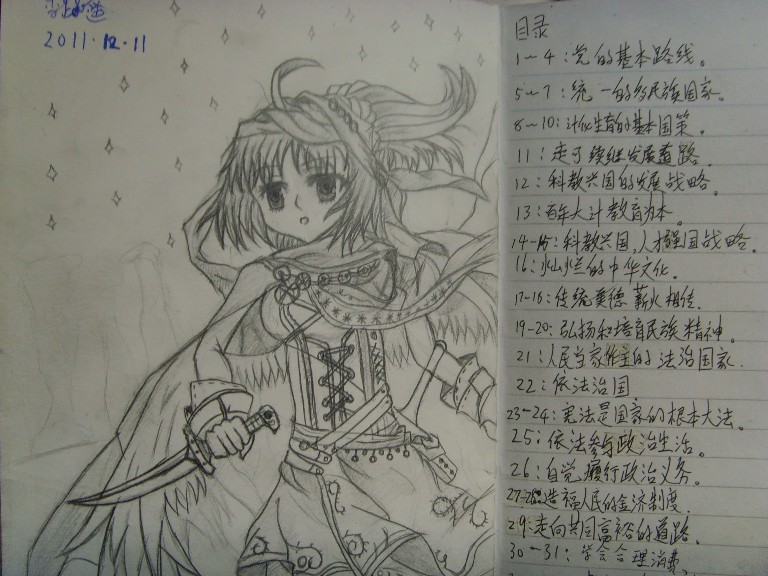 2011.12.11
目录
1~4：党的基本路线。
5~7：统一的多民族国家。
8~10：计划生育的基本国策。
11：走可续继发展道路.
12：科教兴国的发展战略。
13：百年大计教育为本。
14-15：科教兴国,人才强国战略.
16：灿烂的中华文化。
17-18：传统美德 薪火相传.
19-20：弘扬和培育民族精神。
21：人民当家作主的法治国家.
22：依法治国
23-24：宪法是国家的根本大法。
25：依法参与政治生活。
26：自觉履行政治义务。
27-28：造福人民的经济制度.
29：走向共同富裕的道路.
30-31：学会合理消费.